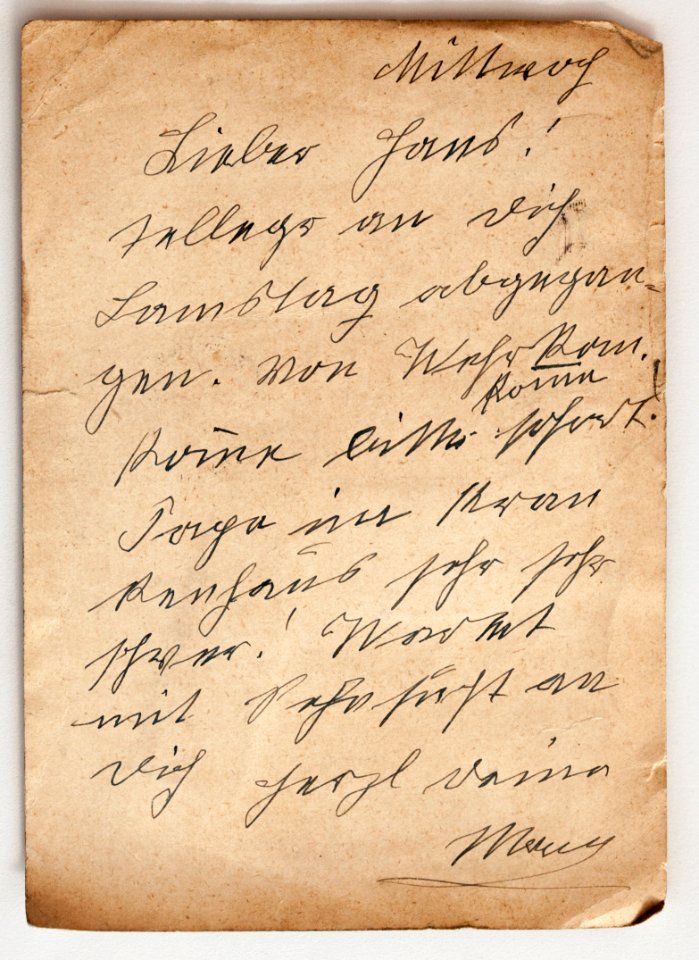 Mittwoch
Lieber Hans!
an Dich
Samstag abgegan-
gen. von Wehrkom.
komme
Komme bitte sofort.
Tage im Kran
kenhaus sehr sehr
schwer! Wartet
mit Sehnsucht an
Dich herzl Deine